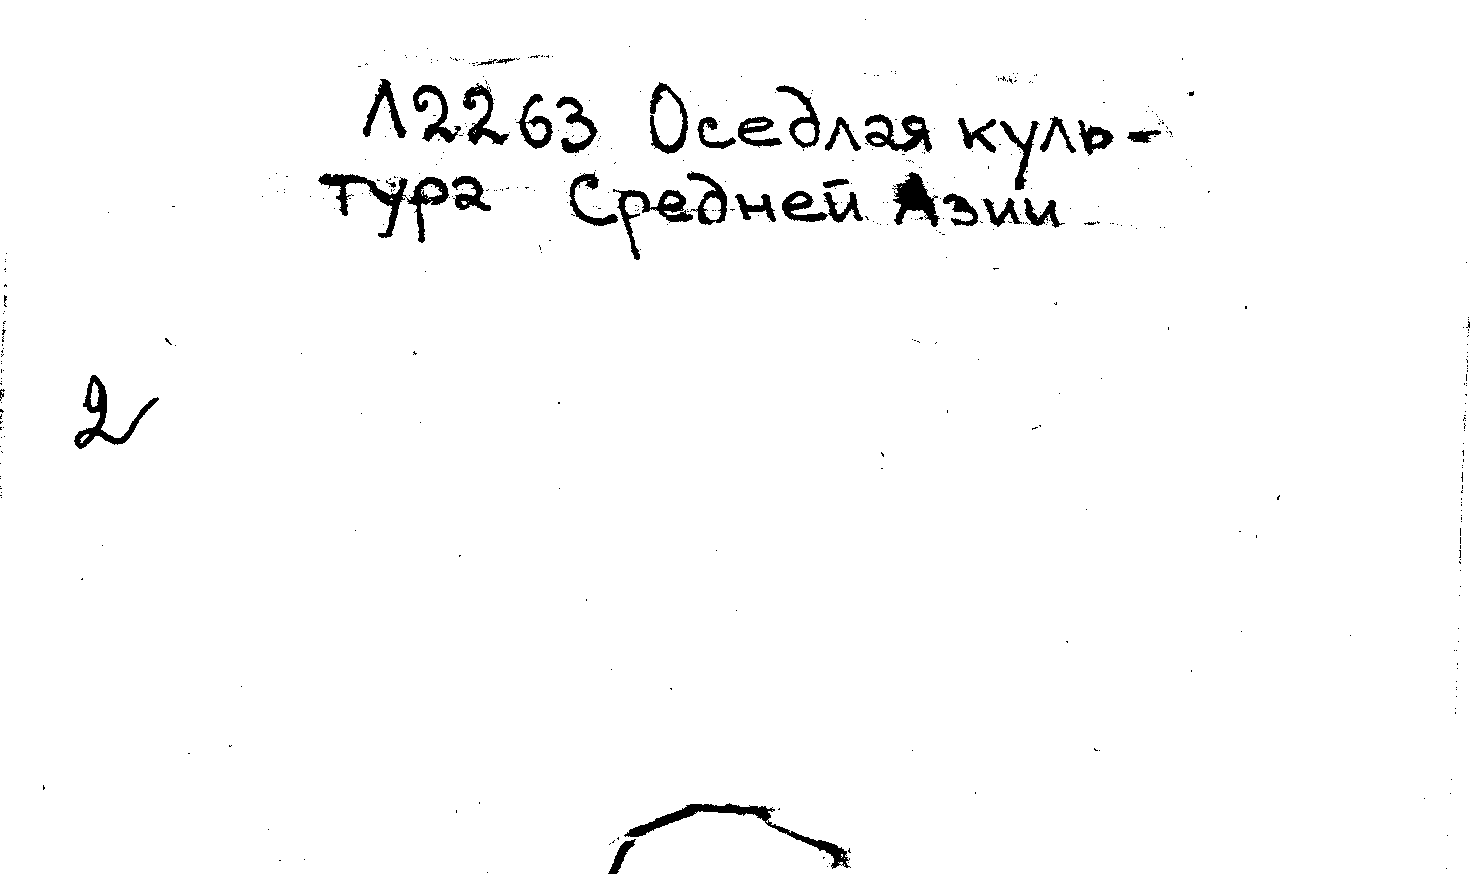 Л2263 Оседлая куль-
тура Средней Азии
2